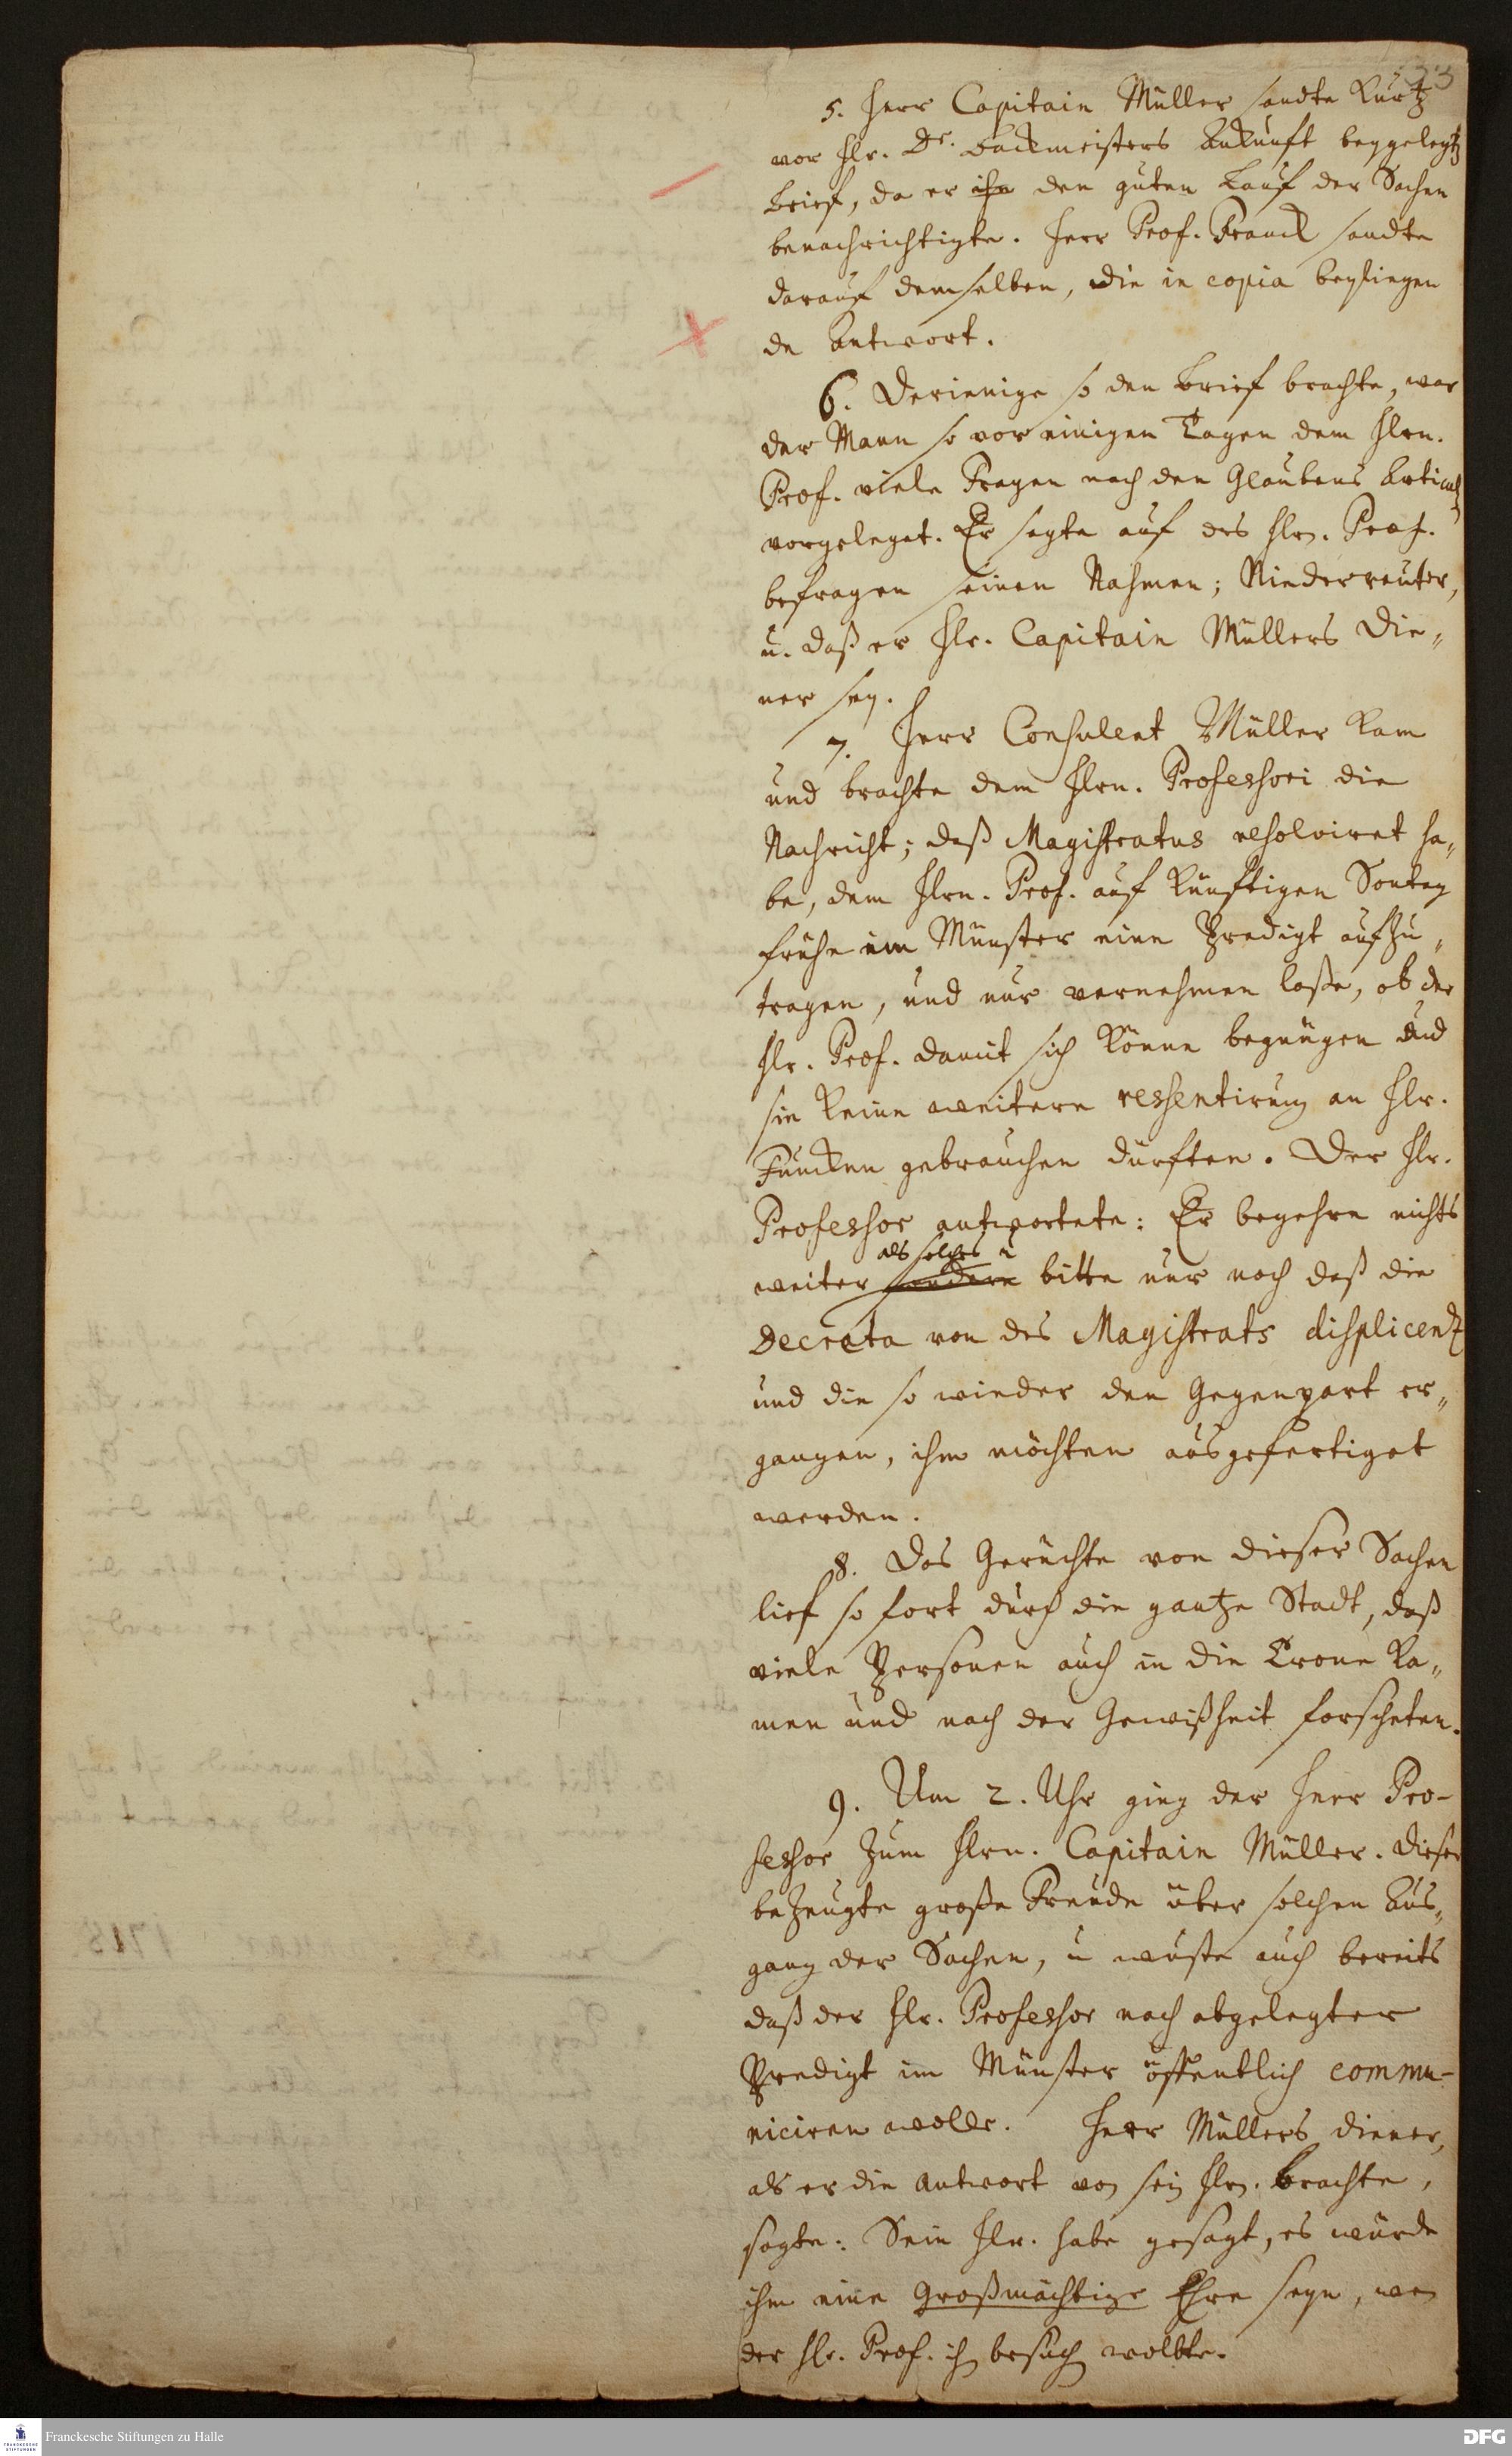 33
5. Herr Capitain Müller sandte kurtz
vor Hr. Dr. Backmeisters Ankunft beygelegtẽ
Brief, da er ihn den guten Lauf der Sachen
benachrichtigte. Herr Prof. Franck sandte
darauf demselben, die in copia beyliegen
de Antwort.
6. Derienige so den Brief brachte, war
der Mann so vor einigen Tagen dem Hrn.
Prof. viele Fragen nach den Glaubens Articuln
vorgeleget. Er sagte auf des Hrn. Prof.
befragen seinen Nahmen; Niederreuter,
u. daß er Hr. Capitain Müllers Die„
ner sey.
7. Herr Consulent Müller kam
und brachte dem Hrn. Professori die
Nachricht; daß Magistratus resolviret ha„
be, dem Hrn. Prof. auf künftigen Sontag
frühe im Münster eine Predigt aufzu„
tragen, und nur vernehmen lasse, ob der
Hr. Prof. damit sich könne begnügen und
sie keine weitere ressentirung an Hr.
Funcken gebrauchen dürften. Der Hr.
Professor antwortete: Er begehre nichts
als solches u
weiter sondern bitte nur noch daß die
Decreta von des Magistrats displicentz
und die so wieder den Gegenpart er„
gangen, ihm möchten ausgefertiget
werden.
8. Das Gerüchte von dieser Sachen
lief so fort durch die gantze Stadt, daß
viele Personen auch in die Crone ka„
men und nach der Gewißheit forscheten.
9. Um 2. Uhr ging der Herr Pro-
fessor zum Hrn. Capitain Müller. Dieser
bezeugte große Freude über solchen Aus„
gang der Sachen, u wuste auch bereits
daß der Hr. Professor nach abgelegter
Predigt im Münster öffentlich commu-
niciren wolle. Herr Müllers diener,
als er die Antwort von sein Hrn. brachte,
sagte: Sein Hr. habe gesagt, es würde
ihm eine Großmächtige Ehre seyn, wen
der Hr. Prof. ihn besuchen wollte.
Franckesche Stiftungen zu Halle
DFG